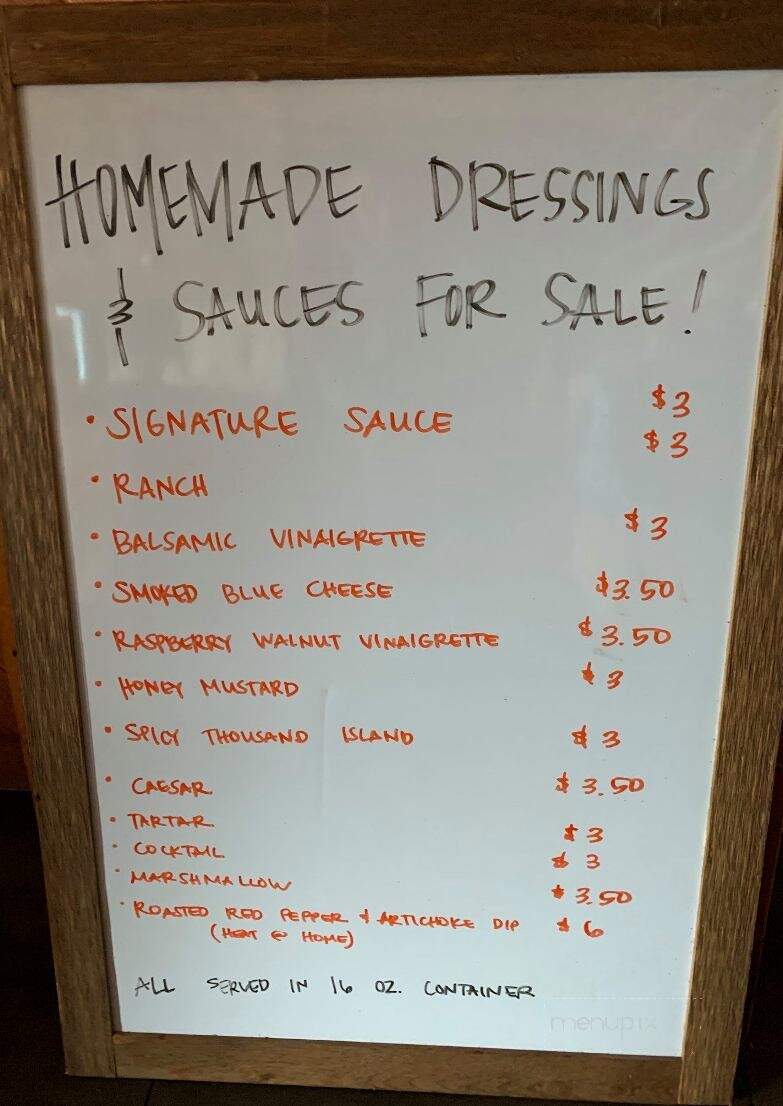 HOMEMADE DRESSINGS
& SAUCES FOR SALE!
• SIGNATURE SAUCE $3
• RANCH $3
• BALSAMIC VINAIGRETTE $3
• SMOKED BLUE CHEESE $3.50
• RASPBERRY WALNUT VINAIGRETTE $3.50
• HONEY MUSTARD $3
• SPICY THOUSAND ISLAND $3
• CAESAR $3.50
• TARTAR $3
• COCKTAIL $3
• MARSHMALLOW $3.50
• ROASTED RED PEPPER & ARTICHOKE DIP $6
(HEAT @ HOME)
ALL SERVED IN 16 OZ. CONTAINER
menupix